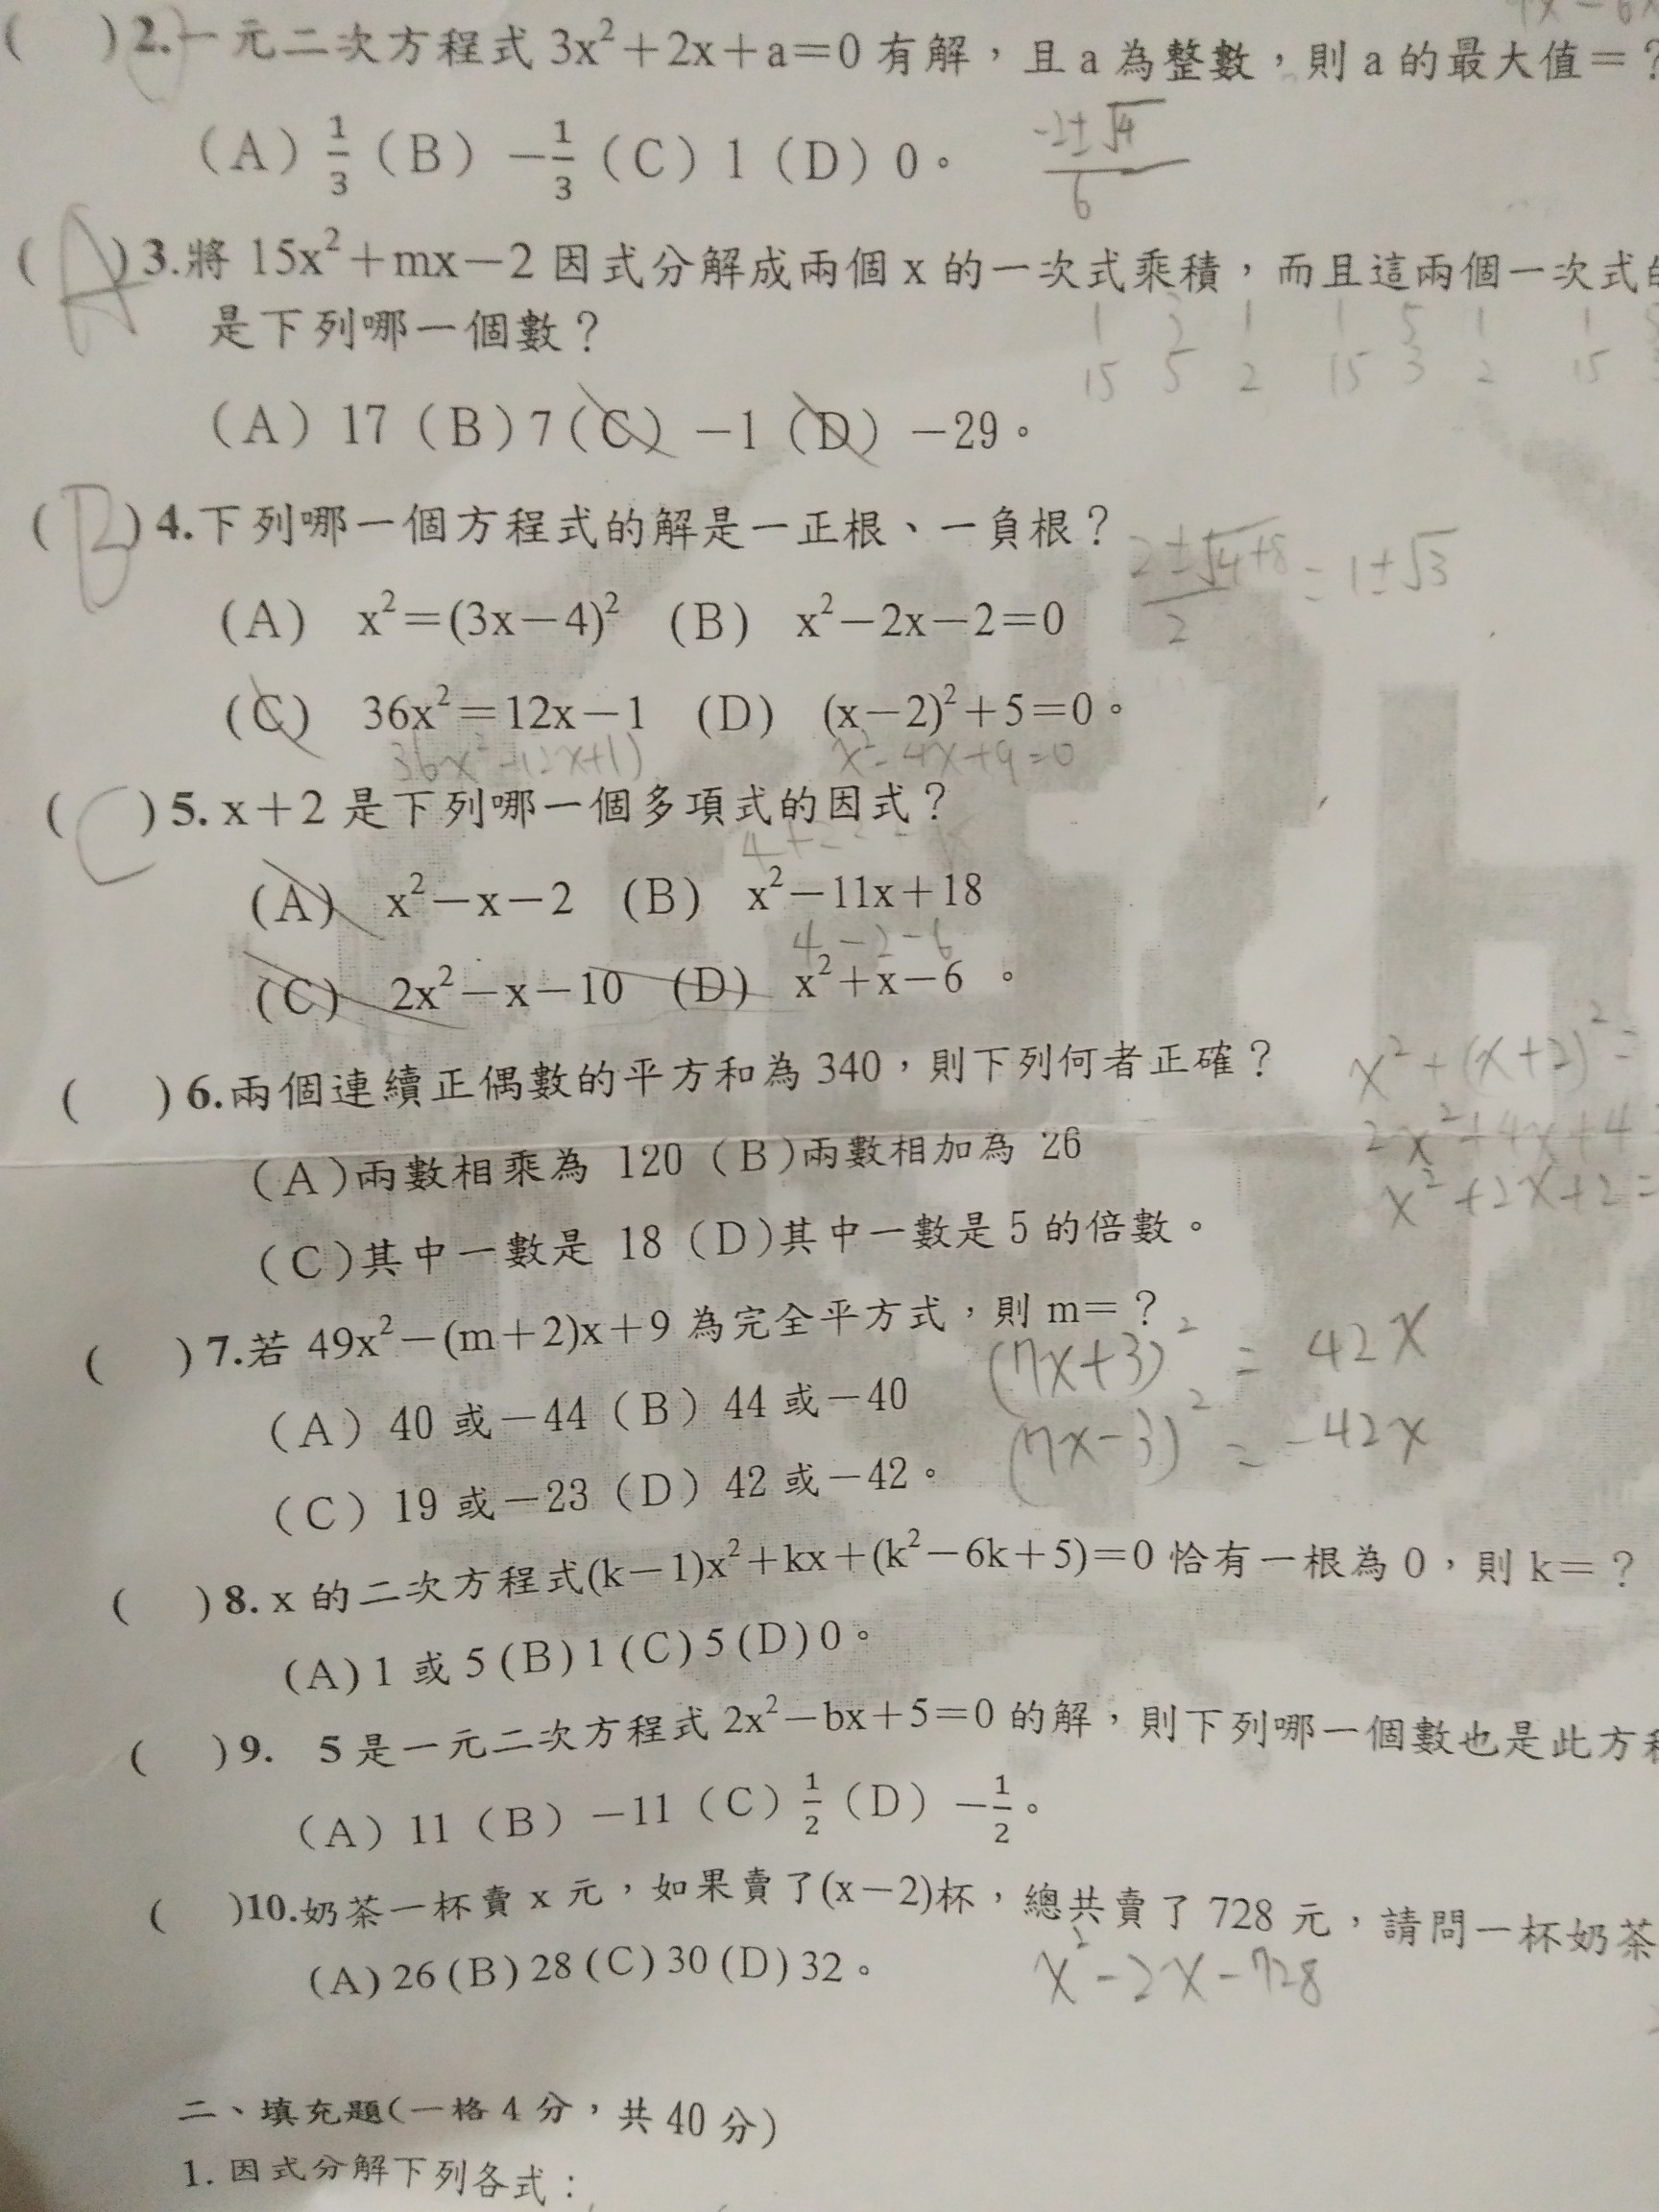 4x-6x
( D )2.一元二次方程式 3x²+2x+a=0 有解，且 a 為整數，則 a 的最大值=？
(A) 1/3 (B) -1/3 (C) 1 (D) 0。 -2±√4 / 6
( A )3.將 15x²+mx-2 因式分解成兩個 x 的一次式乘積，而且這兩個一次式
是下列哪一個數？ 1 3 1 1 5 1 1
15 5 2 15 3 2 15
(A) 17 (B) 7 (C) -1 (D) -29。
( B )4.下列哪一個方程式的解是一正根、一負根？ 2±√4+8 / 2 = 1±√3
(A) x²=(3x-4)² (B) x²-2x-2=0
(C) 36x²=12x-1 (D) (x-2)²+5=0。
36x²-12x+1) x²-4x+9=0
( C )5. x+2 是下列哪一個多項式的因式？
(A) x²-x-2 (B) x²-11x+18
4-2-6
(C) 2x²-x-10 (D) x²+x-6 。
( )6.兩個連續正偶數的平方和為 340，則下列何者正確？ x²+(x+2)²=
(A)兩數相乘為 120 (B)兩數相加為 26 2x²+4x+4
(C)其中一數是 18 (D)其中一數是 5 的倍數。 x²+2x+2=
( )7.若 49x²-(m+2)x+9 為完全平方式，則 m=？
(7x+3)² = 42x
(A) 40 或-44 (B) 44 或-40
(7x-3)² = -42x
(C) 19 或-23 (D) 42 或-42。
( )8. x 的二次方程式(k-1)x²+kx+(k²-6k+5)=0 恰有一根為 0，則 k=？
(A) 1 或 5 (B) 1 (C) 5 (D) 0。
( )9. 5 是一元二次方程式 2x²-bx+5=0 的解，則下列哪一個數也是此方
(A) 11 (B) -11 (C) 1/2 (D) -1/2。
( )10.奶茶一杯賣 x 元，如果賣了(x-2)杯，總共賣了 728 元，請問一杯奶茶
(A) 26 (B) 28 (C) 30 (D) 32。 x²-2x-728
二、填充題(一格 4 分，共 40 分)
1. 因式分解下列各式：